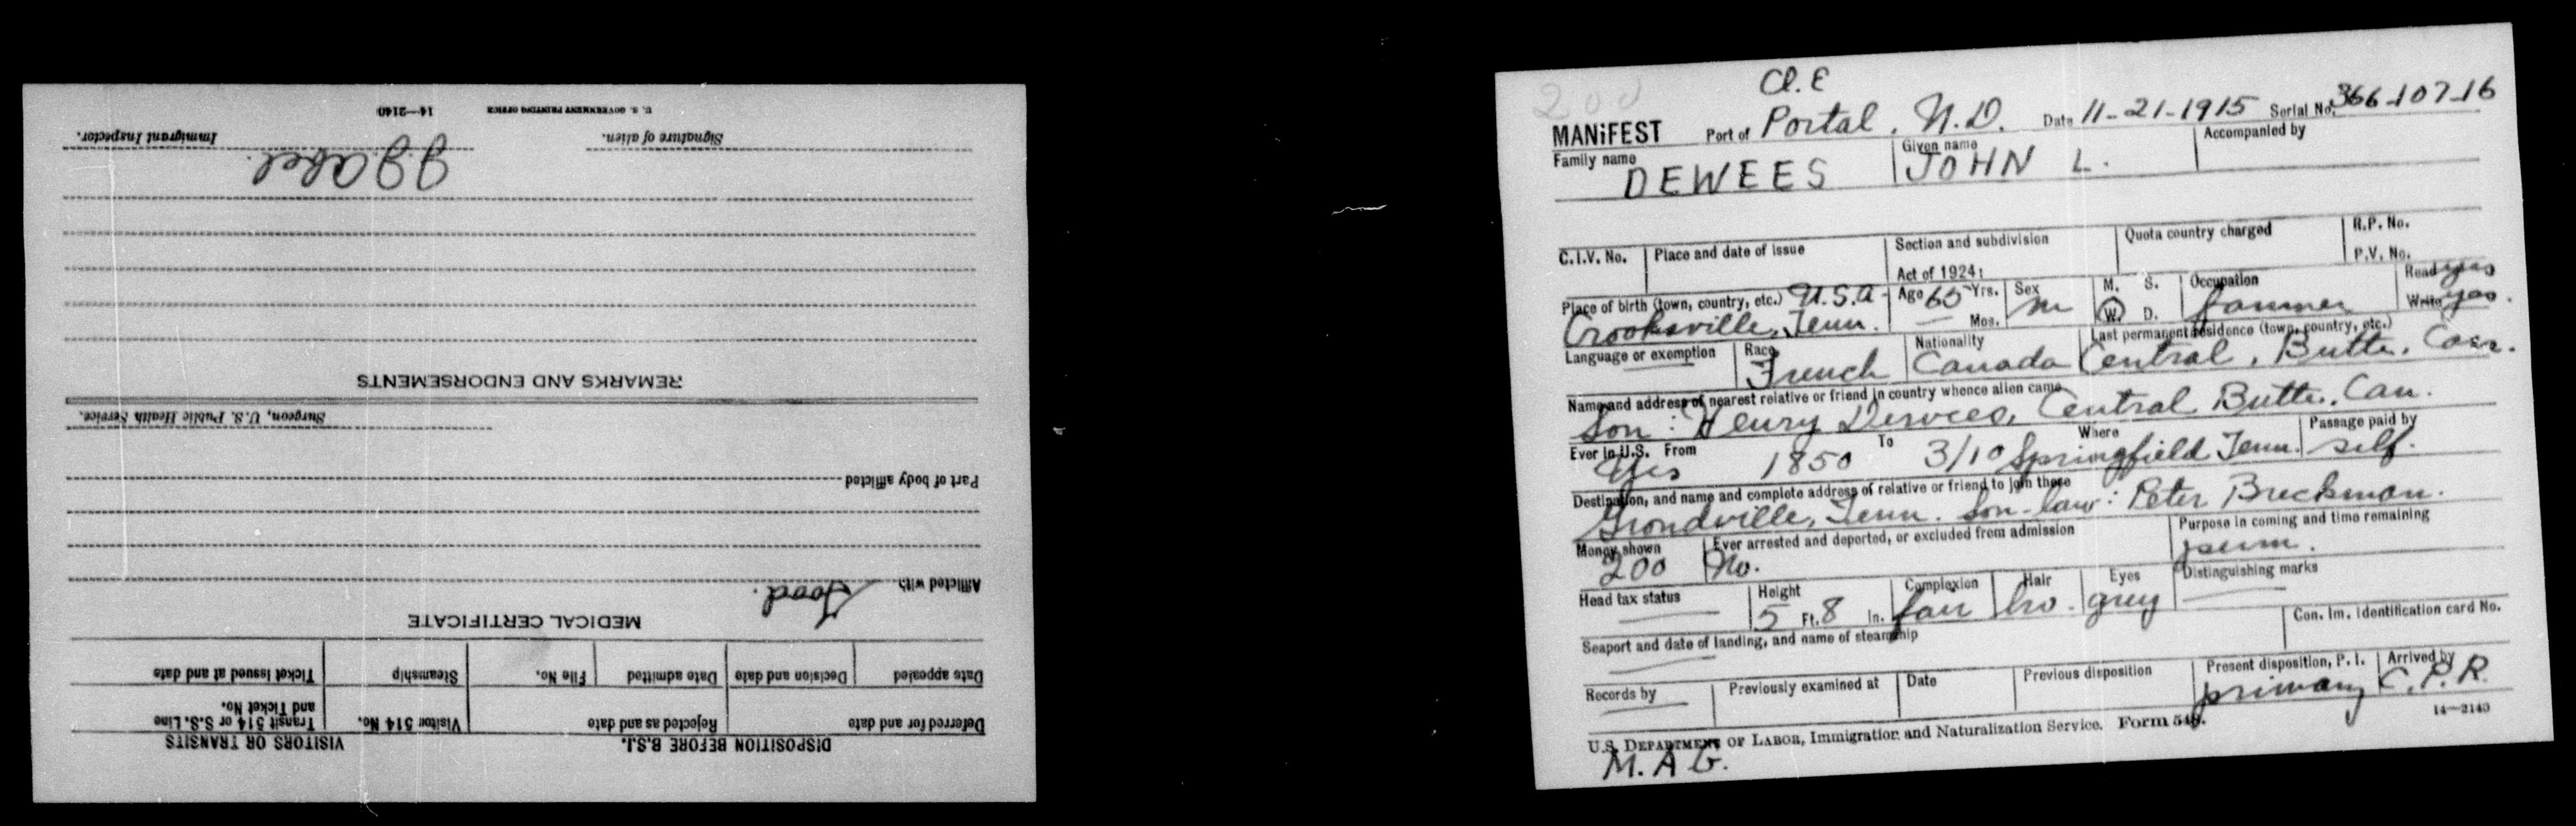 U. S. GOVERNMENT PRINTING OFFICE 14—2140
Signature of alien. Immigrant Inspector.
J J Abel.
REMARKS AND ENDORSEMENTS
Surgeon, U.S. Public Health Service.
Part of body afflicted
Afflicted with Good.
MEDICAL CERTIFICATE
Date appealed Decision and date Date admitted File No. Steamship Ticket issued at and date
Deferred for and date Rejected as and date Visitor 514 No. Transit 514 or S.S. Line and Ticket No.
DISPOSITION BEFORE B.S.I. VISITORS OR TRANSITS
200 Cl. E
MANIFEST Port of Portal, N.D. Date 11-21-1915 Serial No. 366-107-16
Family name DEWEES Given name JOHN L. Accompanied by
C.I.V. No. Place and date of issue Section and subdivision Quota country charged R.P. No.
Act of 1924: P.V. No.
Place of birth (town, country, etc.) U.S.A - Age 65 Yrs. Sex M. S. Occupation Read yes
Crooksville, Tenn. Mos. m W. D. farmer Write yes.
Language or exemption Race French Nationality Canada Last permanent residence (town, country, etc.) Central, Butte, Can.
Name and address of nearest relative or friend in country whence alien came
Son: Henry Dewees, Central Butte, Can.
Ever in U.S. From To Where Passage paid by
Yes 1850 3/10 Springfield Tenn. self.
Destination, and name and complete address of relative or friend to join there
Tenn. Son-law: Peter
Money shown Ever arrested and deported, or excluded from admission Purpose in coming and time remaining
200 No. perm.
Head tax status Height Complexion Hair Eyes Distinguishing marks
5 Ft. 8 In. fair bro. grey
Seaport and date of landing, and name of steamship Con. Im. Identification card No.
Records by Previously examined at Date Previous disposition Present disposition, P. I. Arrived by
primary C.P.R.
U.S. DEPARTMENT OF LABOR, Immigration and Naturalization Service. Form 548. 14—2140
M.A.G.